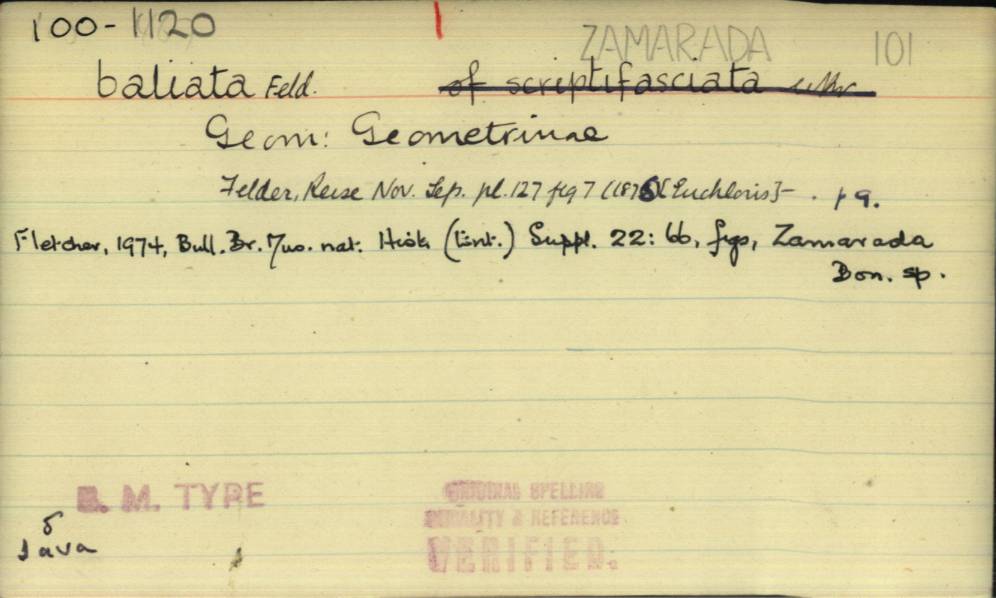 100-1120
ZAMARADA 101
baliata Feld. of scriptifasciata
Geom: Geometrinae
Felder, Reise Nov. Lep. pl. 127 fig 7 (1875) [Euchloris]- . 19.
Fletcher, 1974, Bull. Br. Mus. nat. Hist. (Ent.) Suppl. 22: 66, figs, Zamarada
Bon. sp.
B. M. TYPE
♂
Java
ORIGINAL SPELLING
& REFERENCE
VERIFIED.